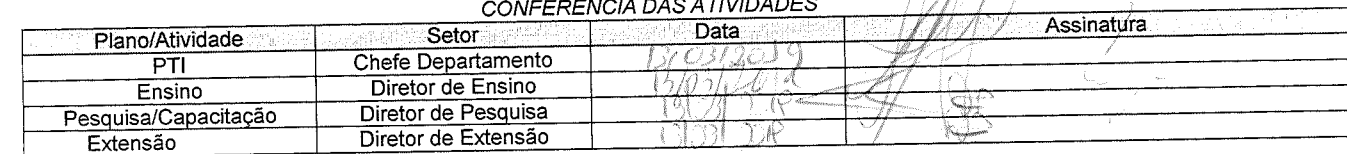 CONFERÊNCIA DAS ATIVIDADES
Plano/Atividade Setor Data Assinatura
PTI Chefe Departamento 13/03/2019
Ensino Diretor de Ensino
Pesquisa/Capacitação Diretor de Pesquisa
Extensão Diretor de Extensão